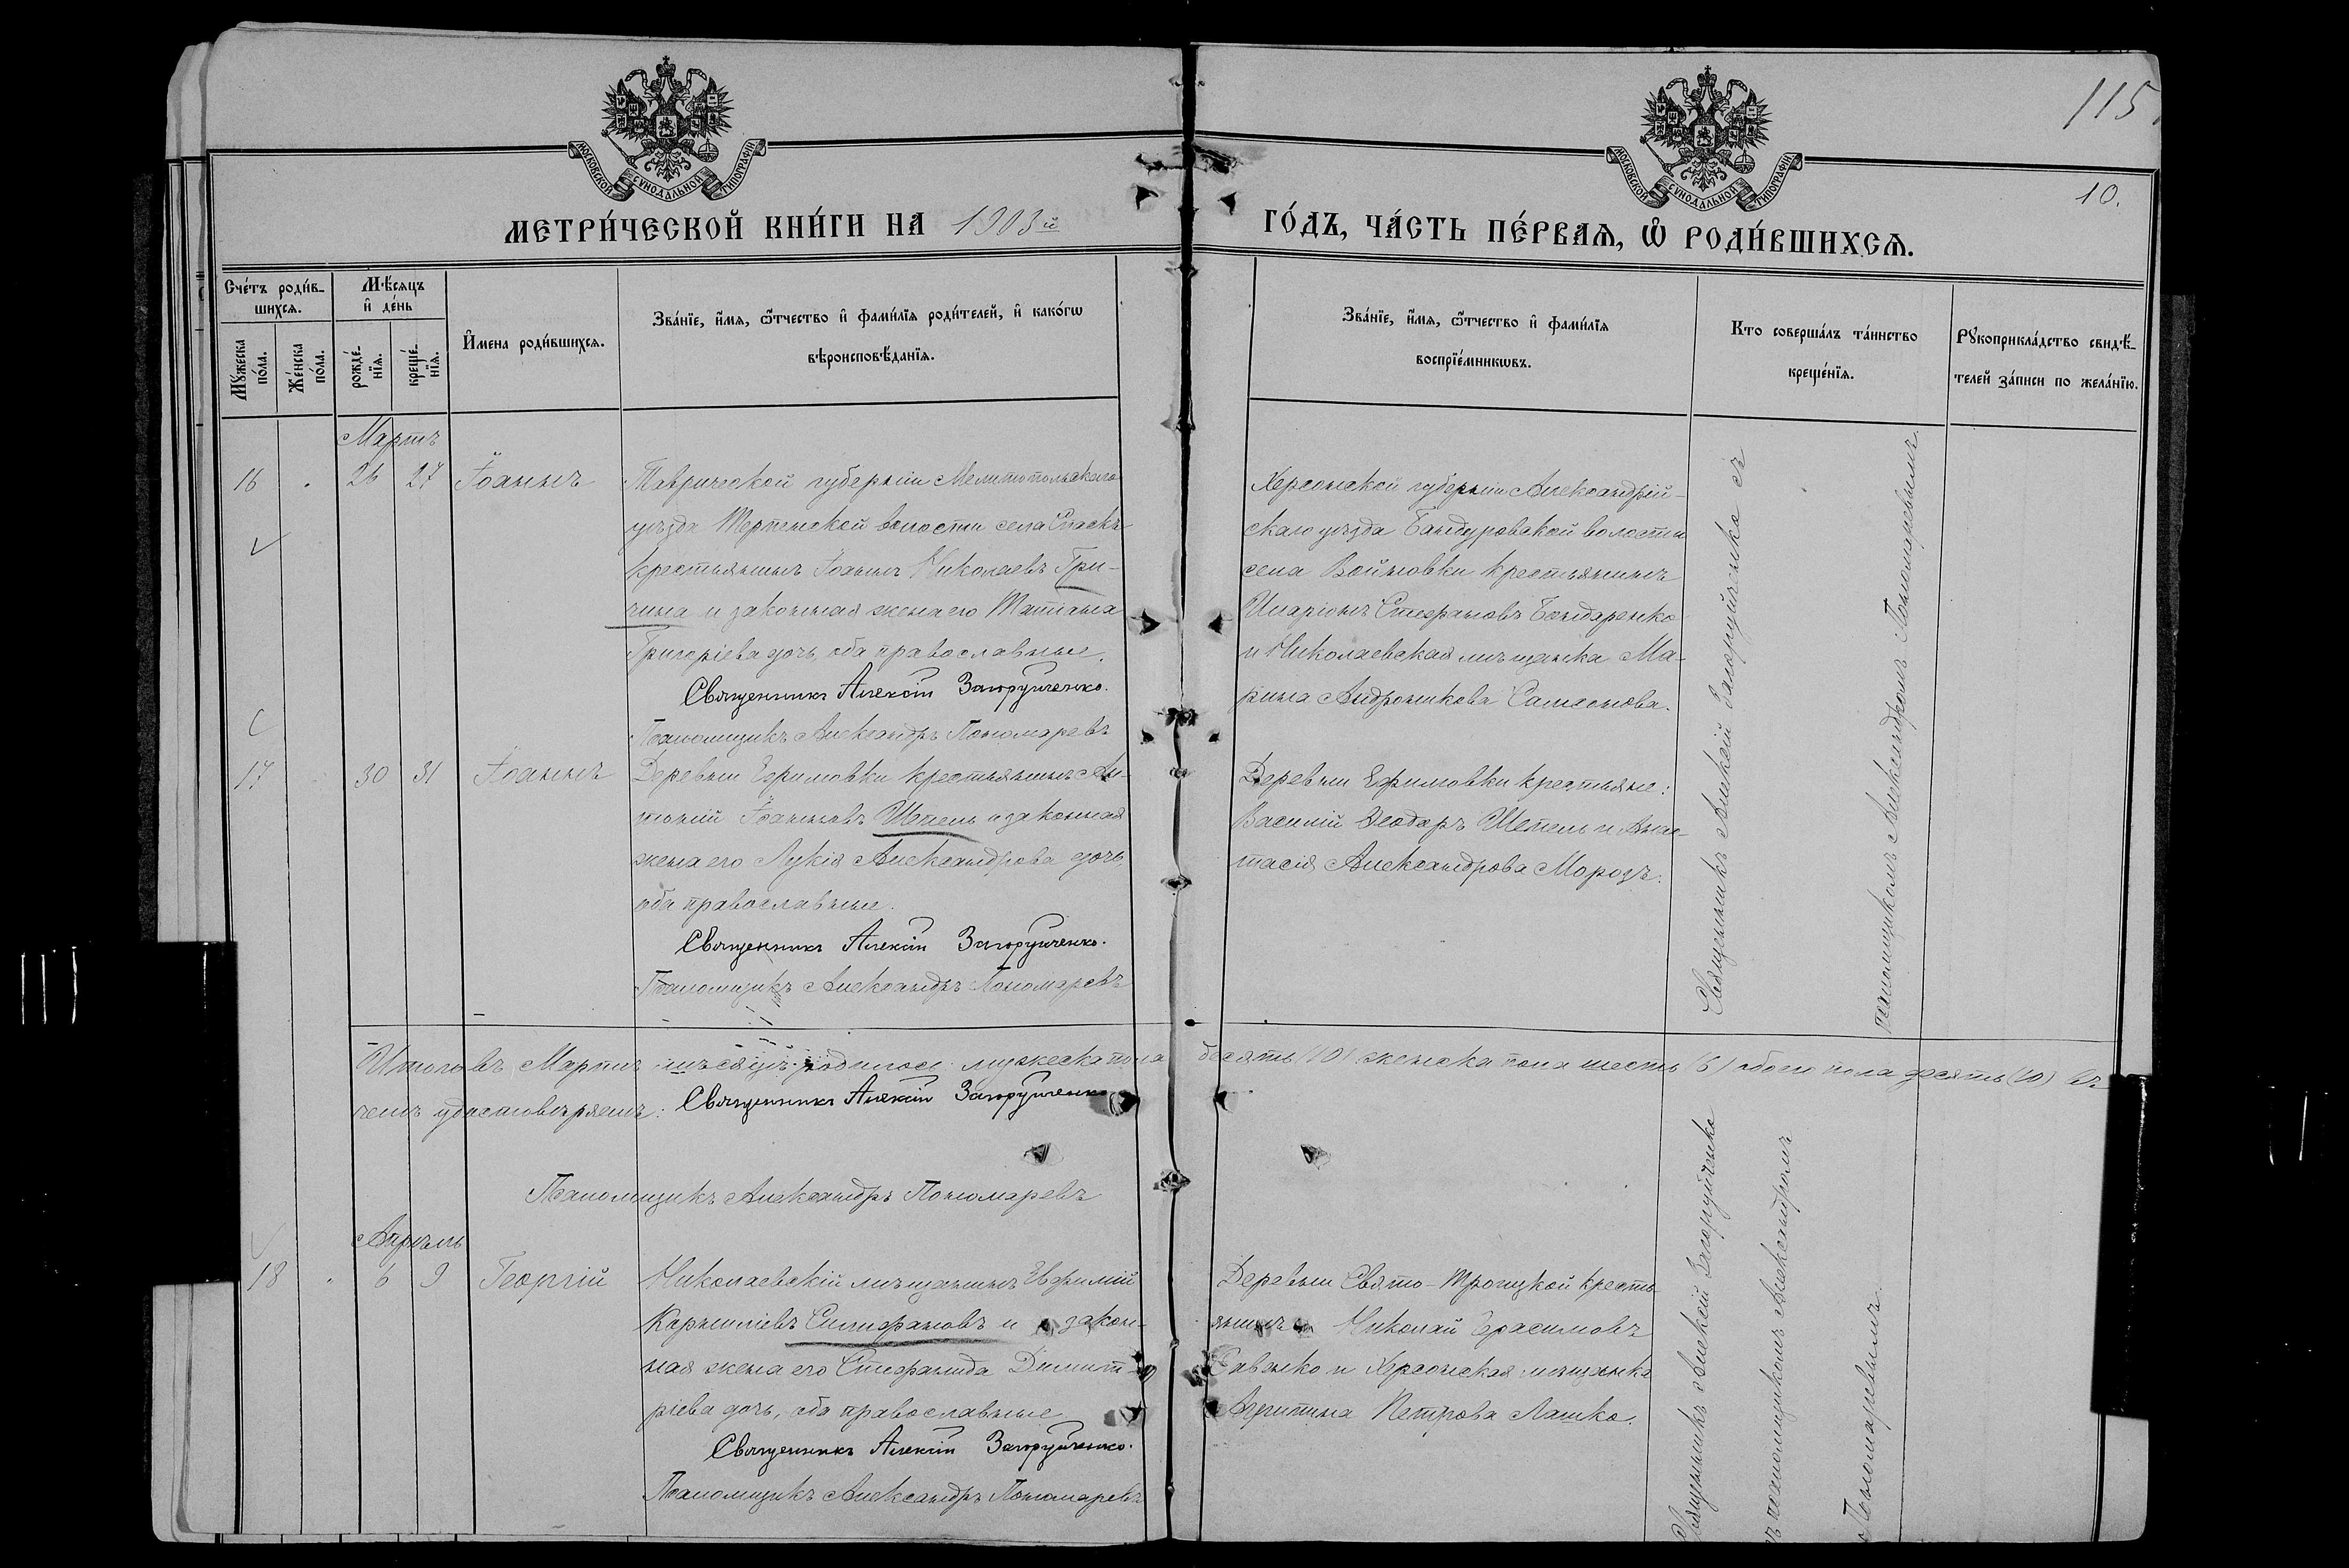 115
10.
МОСКОВСКОЙ СѴНОДАЛЬНОЙ ТИПОГРАФІИ
МОСКОВСКОЙ СѴНОДАЛЬНОЙ ТИПОГРАФІИ
МЕТРИ́ЧЕСКОЙ КНИ́ГИ НА 1903й
ГО́ДЪ, ЧА́СТЬ ПЕ́РВАѦ, Ѡ РОДИ́ВШИХСѦ.
Сче́тъ роди́в-
шихсѧ.
Мꙋ́жеска по́ла.
Же́нска по́ла.
Мѣ́сѧцъ
и҆ де́нь
рожде́-
нїѧ.
креще́-
нїѧ.
И҆́мена роди́вшихсѧ.
Зва́нїе, и҆́мѧ, ѻ҆́тчество и҆ фами́лїѧ роди́телей, и҆ како́гѡ
вѣроисповѣ́данїѧ.
Зва́нїе, и҆́мѧ, ѻ҆́тчество и҆ фами́лїѧ
воспрїе́мникѡвъ.
Кто соверша́лъ та́инство
креще́нїѧ.
Рꙋкоприкла́дство свидѣ́-
телей за́писи по жела́нїю.
Мартъ
16 26 27 Іоаннъ
Таврической губерніи Мелитопольскаго
уѣзда Терпенской волости села Спаск
крестьянинъ Іоаннъ Николаевъ Гри-
чина и законная жена его Татіана
Григоріева дочь, оба православные.
Священникъ Алексій Загоруйченко.
Псаломщикъ Александръ Пономаревъ
Херсонской губерніи Александрій-
скаго уѣзда Бандуровской волости
села Войновки крестьянинъ
Иларіонъ Стефановъ Бондаренко
и Николаевская мѣщанка Ма-
рина Андроникова Самсонова.
17 30 31 Іоаннъ
Деревни Ефимовки крестьянинъ Ан-
тоній Іоанновъ Шепель и законная
жена его Лукія Александрова дочь,
оба православные.
Священникъ Алексій Загоруйченко.
Псаломщикъ Александръ Пономаревъ
Деревни Ефимовки крестьяне:
Василій Ѳеодоръ Шепель и Анас-
тасія Александрова Морозъ.
Священникъ Алексій Загоруйченко съ
псаломщикомъ Александромъ Пономаревымъ.
Итого въ Мартѣ мѣсяцѣ родилось мужеска пола десять (10) женска пола шесть (6) обоего пола десять (10) въ
чемъ удостовѣряемъ: Священникъ Алексій Загоруйченко
Псаломщикъ Александръ Пономаревъ
Апрѣль
18 6 9 Георгій
Николаевскій мѣщанинъ Евфимій
Карниліевъ Симфановъ и закон-
ная жена его Стефанида Димит-
ріева дочь, оба православные
Священникъ Алексій Загоруйченко.
Псаломщикъ Александръ Пономаревъ
Деревни Свято-Троицкой кресть
янинъ Николай Герасимовъ
Савенко и Херсонская мѣщанка
Агрипина Петрова Лашко.
Священникъ Алексій Загоруйченко
съ псаломщикомъ Александромъ
Пономаревымъ.